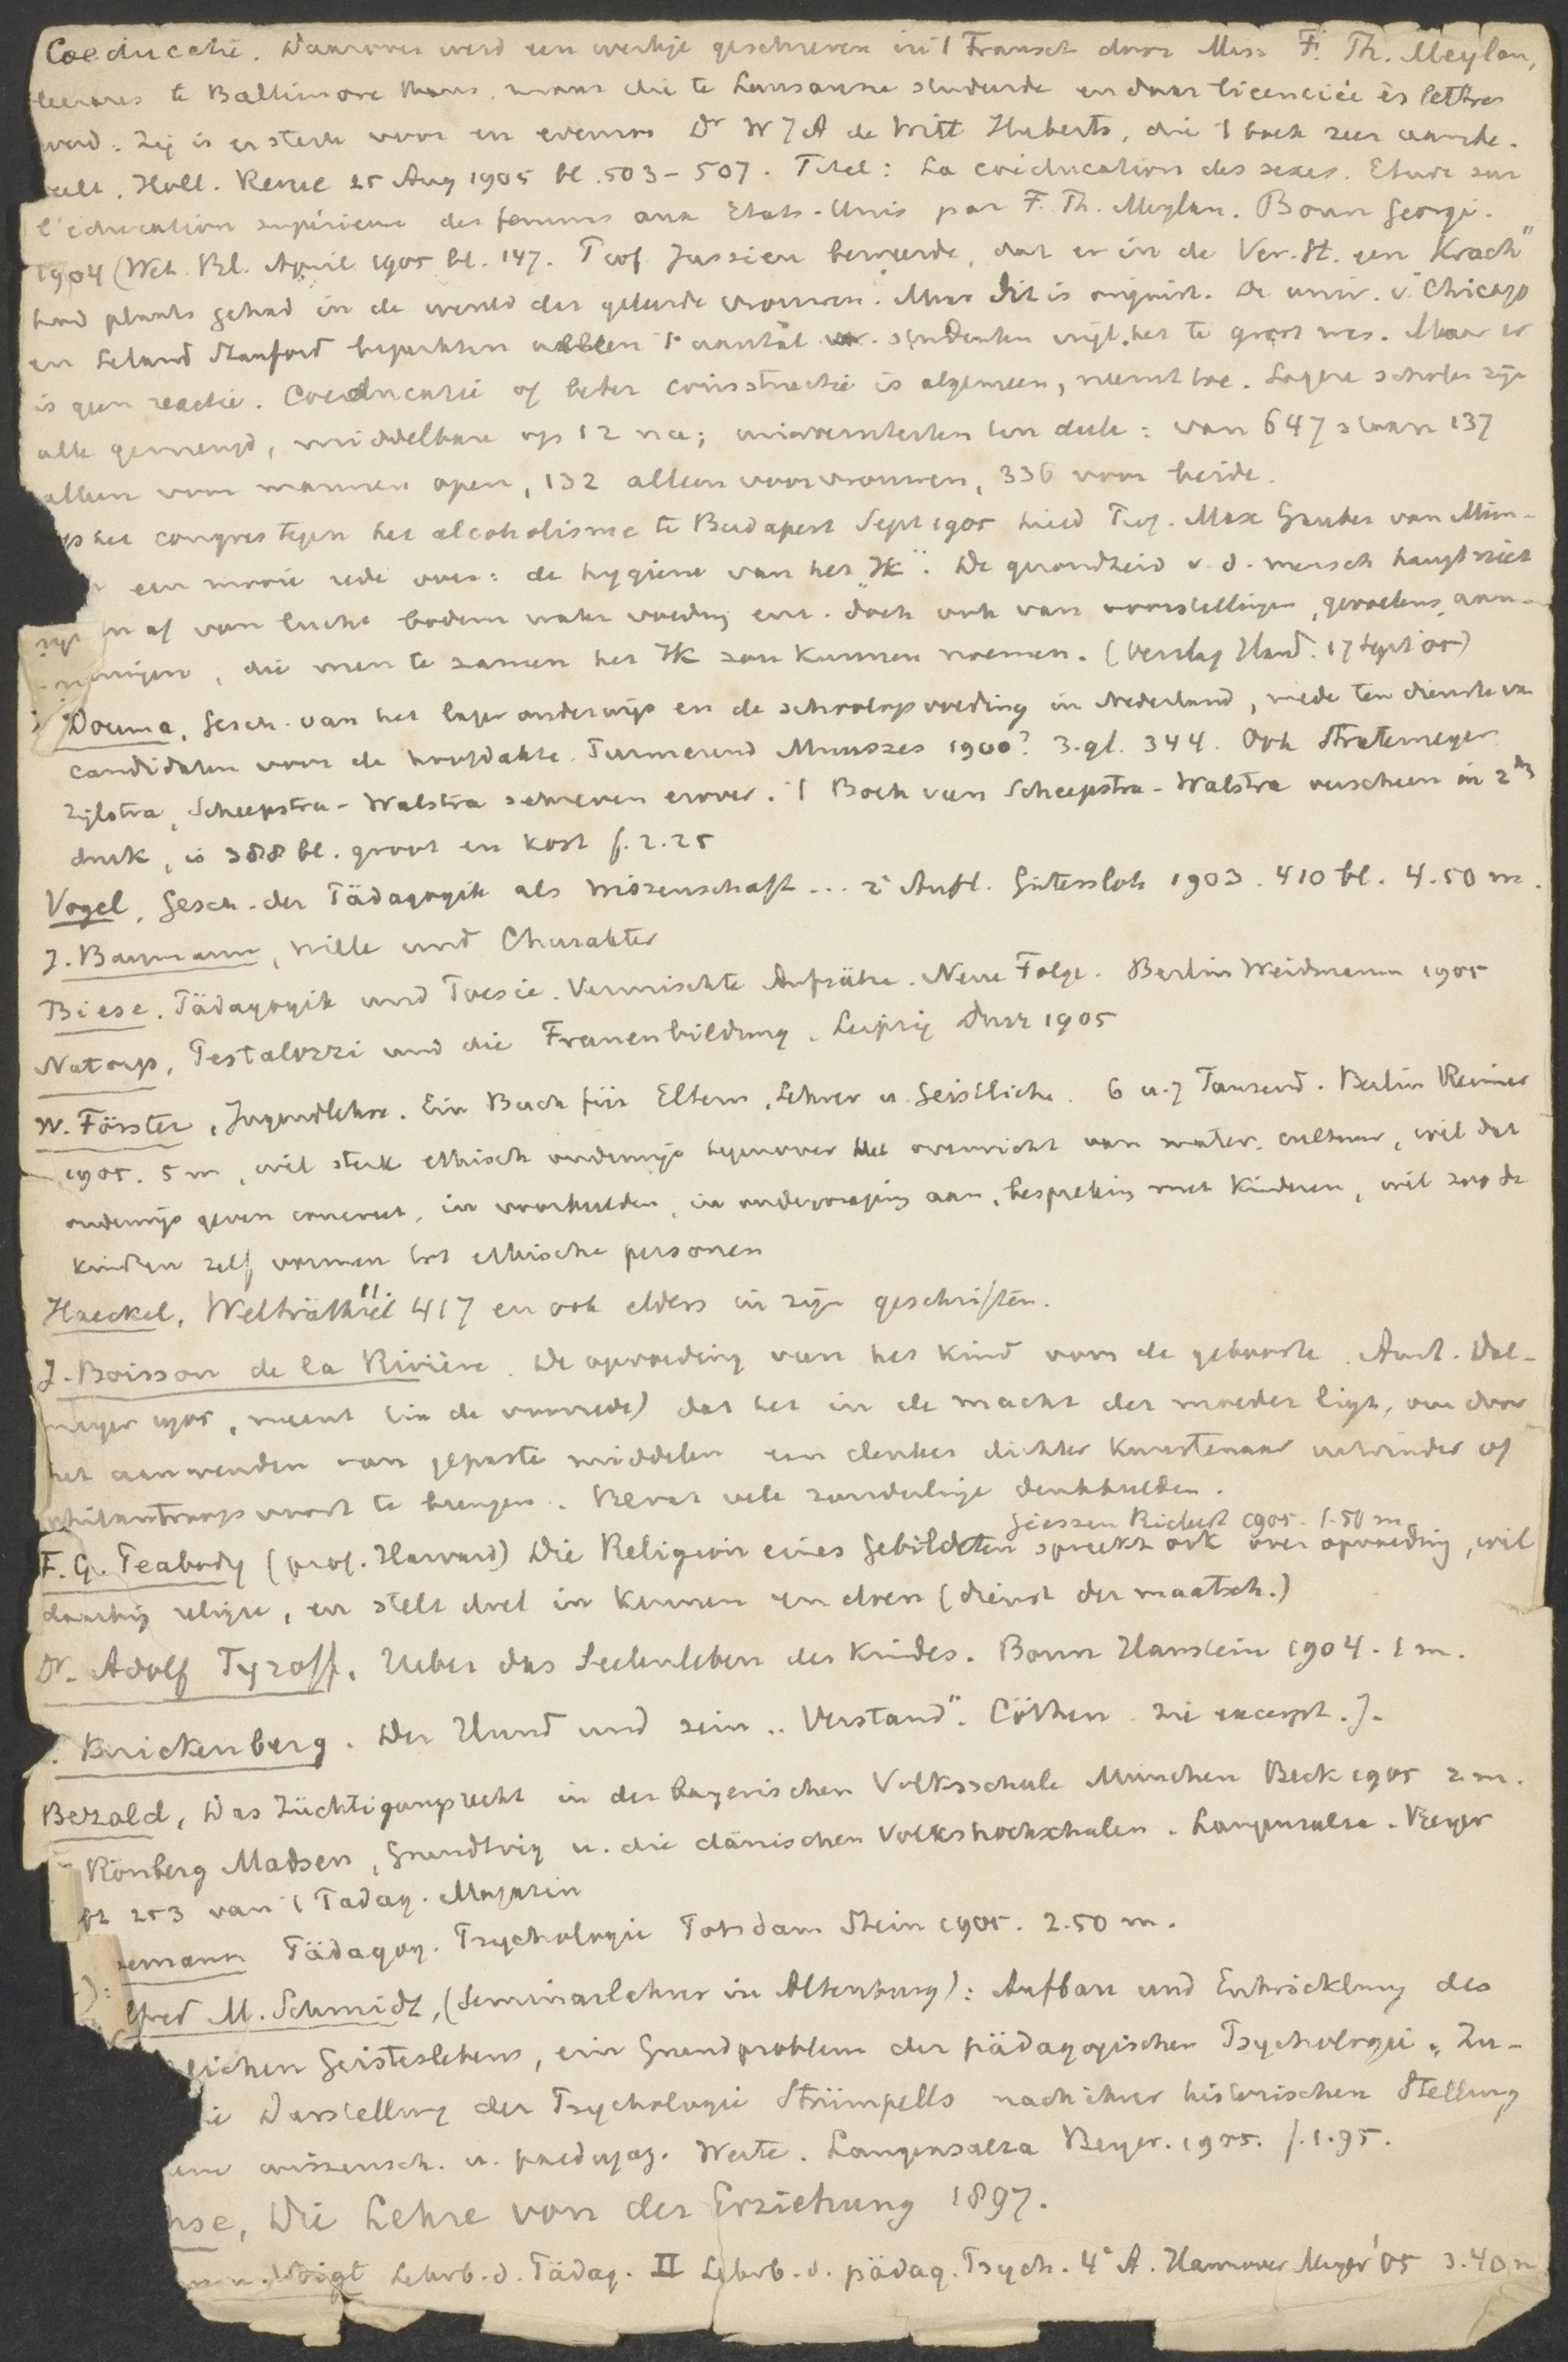 Coeducatie. Daarover werd een werkje geschreven in 't Fransch door Miss F. Th. Meylan,
leerares te Baltimore thans, maar die te Lausanne studeerde en daar licenciée ès lettres
werd. Zij is er sterk voor en evenzo Dr W J A de Witt Huberts, die 't boek zeer aanbe-
veelt. Holl. Revue 25 Aug 1905 bl. 503-507. Titel: La coéducation des sexes. Etude sur
l'éducation supérieure des femmes aux Etats-Unis par F. Th. Meylan. Bonn Georgi.
1904 (Wet. Bl. April 1905 bl. 147. Prof Jussieu beweerde, dat er in de Ver. St. een "Krach"
had plaats gehad in de wereld der geleerde vrouwen. Maar dit is onjuist. De univ. v. Chicago
en Leland Stanford beperkten alleen 't aantal vr. studenten wijl het te groot was. Maar er
is geen reactie. Coeducatie of beter coinstructie is algemeen, neemt toe. Lagere scholen zijn
alle gemengd, middelbare op 12 na; universiteiten ten deele: van 647 staan 137
alleen voor mannen open, 132 alleen voor vrouwen, 336 voor beide.
Op het congres tegen het alcoholisme te Budapest Sept 1905 hield Prof. Max Gruber van Mün-
een mooie rede over: de hygiene van het "Ik". De gezondheid v. d. mensch hangt niet
af van lucht bodem water voeding enz. doch ook van voorstellingen, gevoelens, aan-
, die men te zamen het Ik zou kunnen noemen. (Verslag Hand. 17 Sept 05)
Douma, Gesch. van het lager onderwijs en de schoolopvoeding in Nederland, mede ten dienste van
candidaten voor de hoofdakte. Purmerend Muusses 1900? 3.gl. 344. Ook Stratemeyer
Zijlstra, Scheepstra-Walstra schreven erover. 't Boek van Scheepstra-Walstra verscheen in 2den
druk, is 388 bl. groot en kost f. 2.25
Vogel, Gesch. der Pädagogik als Wissenschaft... 2e Aufl. Gütersloh 1903. 410 bl. 4.50 m.
J. Baumann, Wille und Charakter
Biese. Pädagogik und Poesie. Vermischte Aufsätze. Neue Folge. Berlin Weidmann 1905
Natorp, Pestalozzi und die Frauenbildung. Leipzig Dürr 1905
W. Förster, Jugendlehre. Ein Buch für Eltern, Lehrer u. Geistliche. 6 u. 7 Tausend. Berlin Reimer
1905. 5 m, wil sterk ethisch onderwijs tegenover het overwicht van mater. cultuur, wil dat
onderwijs geven concreet, in voorbeelden, in ondervraging aan, bespreking met kinderen, wil zoo de
kinderen zelf vormen tot ethische personen
Haeckel, Welträthsel 417 en ook elders in zijn geschriften.
J. Boisson de la Rivière. De opvoeding van het kind voor de geboorte. Amst. Dal-
meyer 1905, meent (in de voorrede) dat het in de macht der moeder ligt, om door
het aanwenden van gepaste middelen een denker dichter kunstenaar uitvinder of
philantroop voort te brengen. Bevat vele zonderlinge denkbeelden.
Giessen Ricker 1905. 1.50 m
F. G. Peabody (prof. Harvard) Die Religion eines Gebildeten spreekt ook over opvoeding, wil
daarbij religie, en stelt doel in kennen en doen (dienst der maatsch.)
Dr. Adolf Dyroff, Ueber das Seelenleben des Kindes. Bonn Hanstein 1904. 1 m.
Knickenberg. Der Hund und sein "Verstand". Cöthen. Zie excerpt. J.
Bezold, Das Züchtigungsrecht in der bayerischen Volksschule München Beck 1905 2 m.
Rönberg Madsen, Grundtvig u. die dänischen Volkshochschulen. Langensalza. Beyer
253 van 't Pädag. Magazin
emann Pädagog. Psychologie Potsdam Stein 1905. 2.50 m.
lfred M. Schmidt, (Seminarlehrer in Altenburg): Aufbau und Entwicklung des
lichen Geisteslebens, ein Grundproblem der pädagogischen Psychologie. Zu-
ie Darstellung der Psychologie Strümpells nach ihrer historischen Stellung
wissensch. u. paedagog. Werte. Langensalza Beyer. 1905. f. 1.95.
hse, Die Lehre von der Erziehung 1897.
Voigt Lehrb. d. Pädag. II Lehrb. d. pädag. Psych. 4e A. Hannover Meyer '05 3.40 m